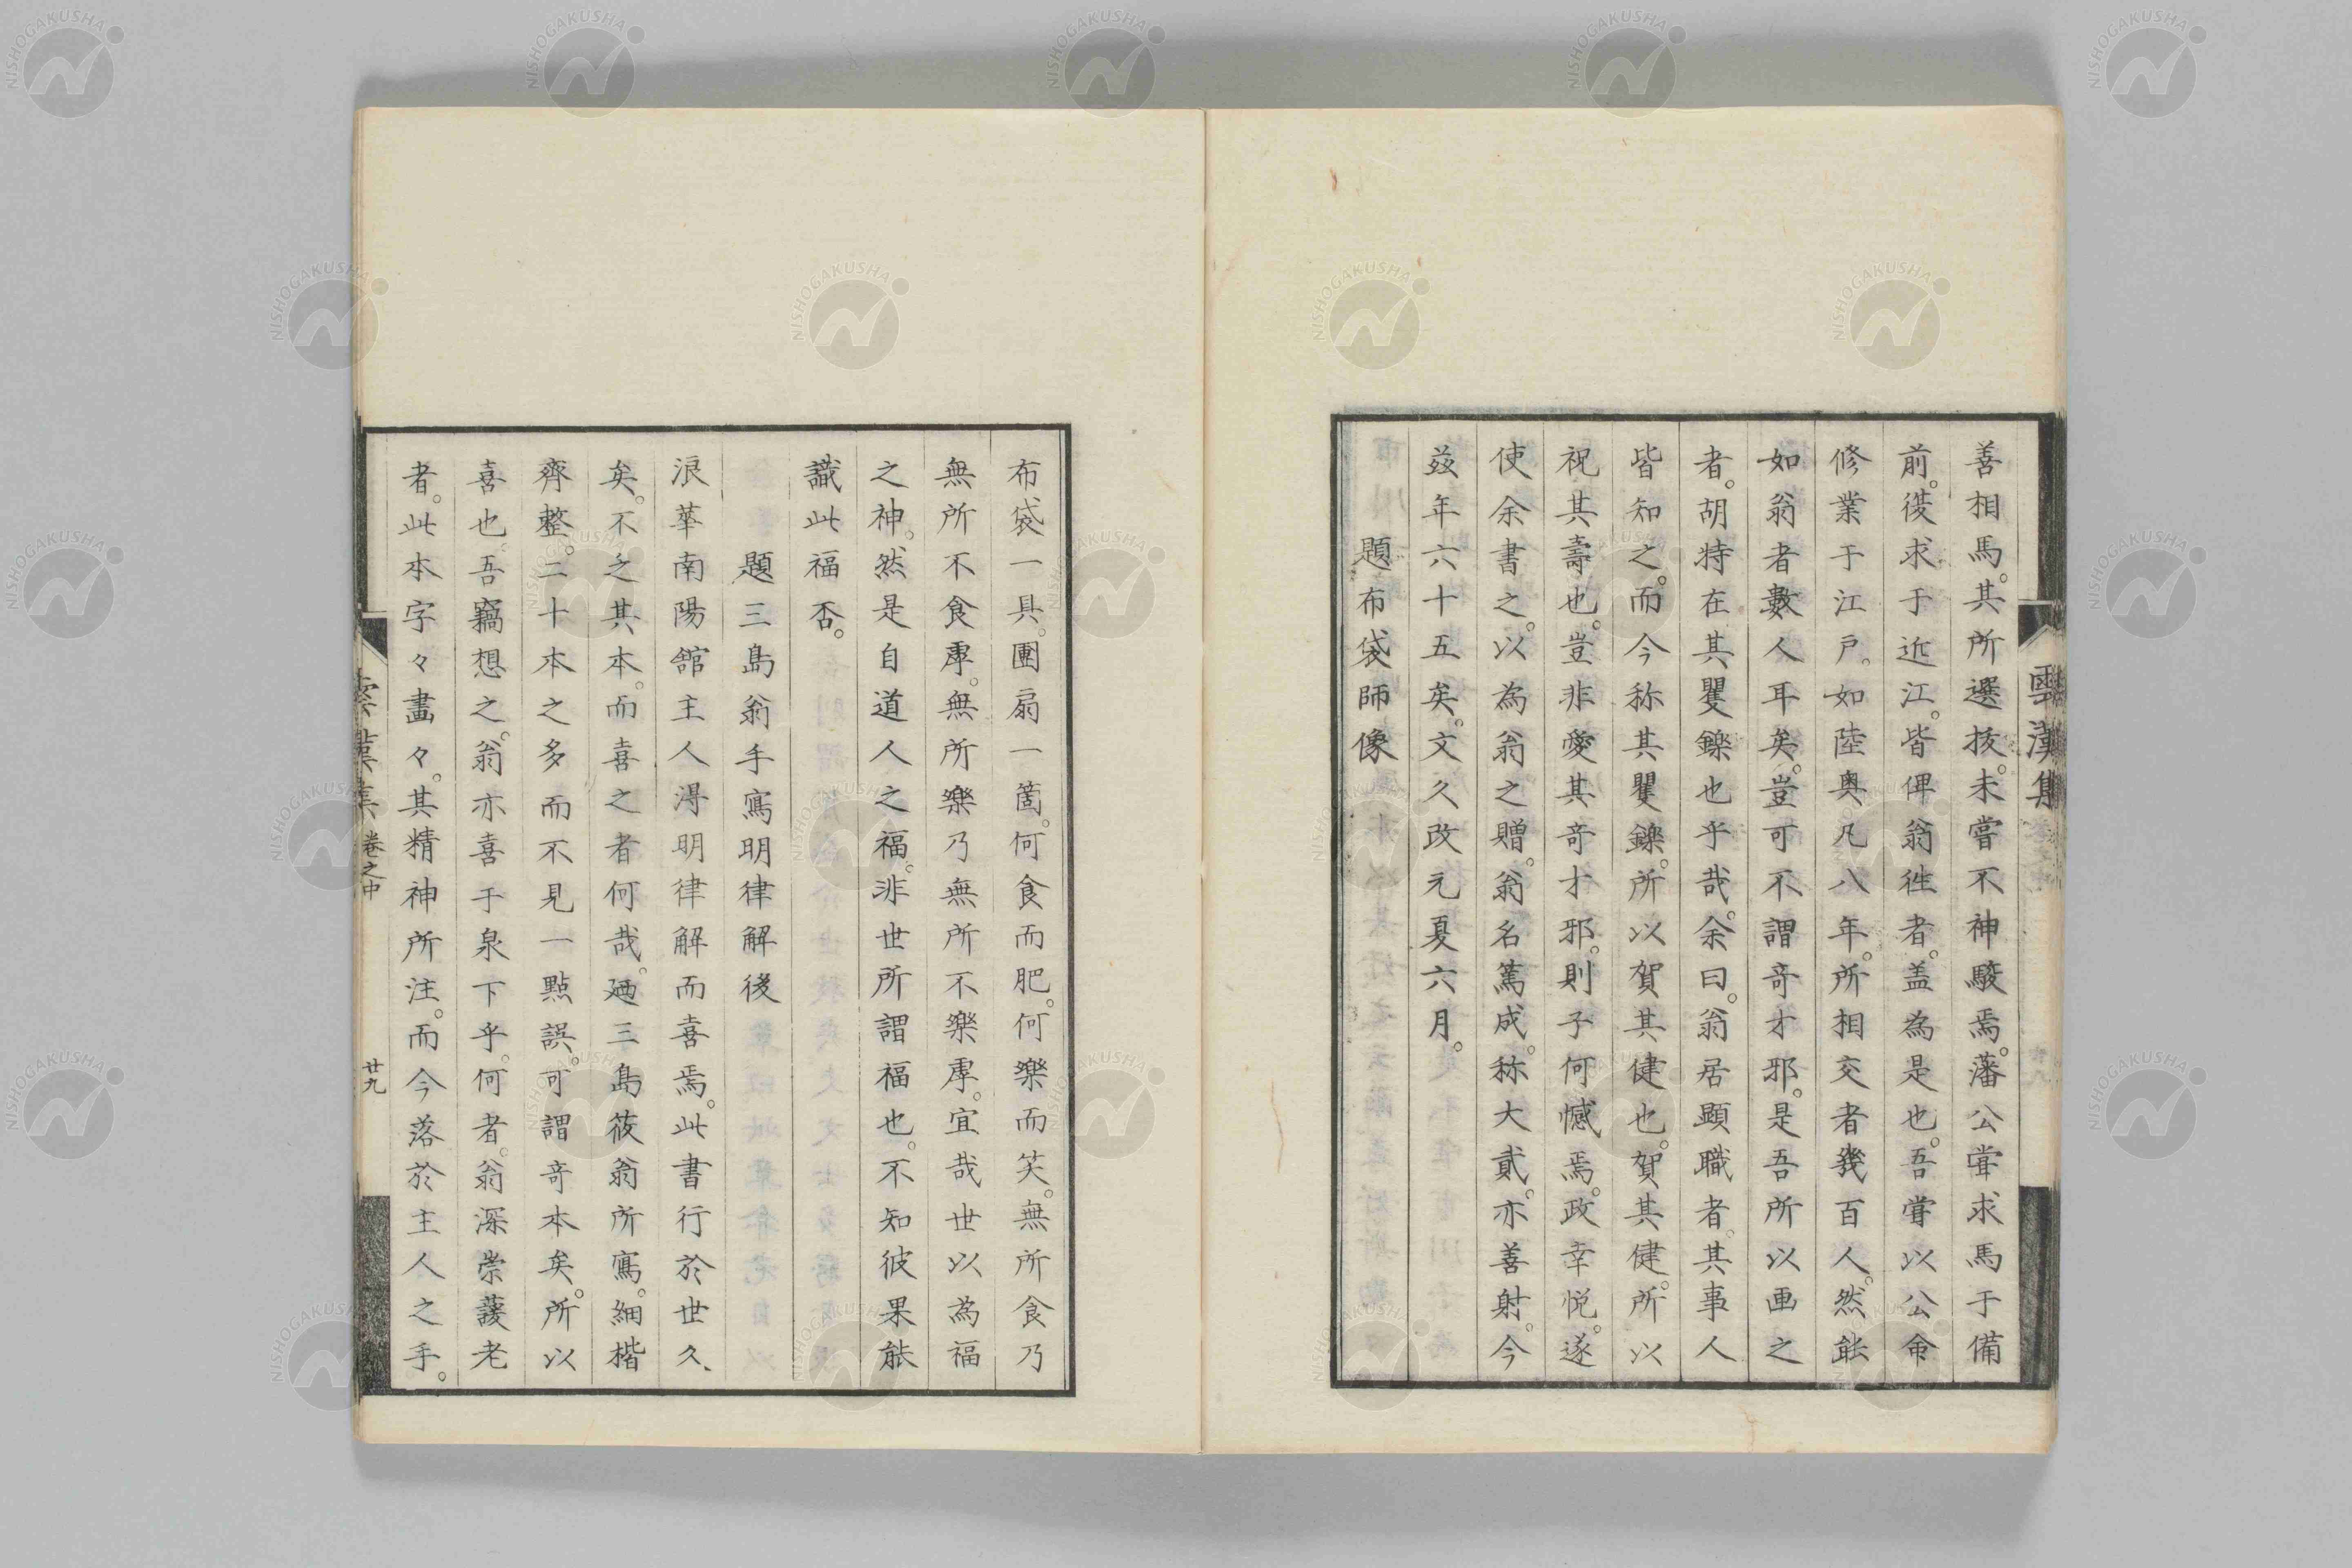 善相馬。其所選抜。未嘗不神駿焉。藩公嘗求馬于備
前。後求于近江。皆俾翁往者。盖為是也。吾嘗以公命
修業于江戸。如陸奥凡八年。所相交者幾百人。然能
如翁者數人耳矣。豈可不謂奇才邪。是吾所以画之
者。胡特在其矍鑠也乎哉。余曰。翁居顕職者。其事人
皆知之。而今称其矍鑠。所以賀其健也。賀其健。所以
祝其壽也。豈非愛其奇才邪。則子何憾焉。政幸悦。遂
使余書之。以為翁之贈。翁名篤成。称大貳。亦善射。今
茲年六十五矣。文久改元夏六月。
題布袋師像
雲漢集
布袋一具。團扇一箇。何食而肥。何樂而笑。無所食乃
無所不食虖。無所樂乃無所不樂虖。宜哉世以為福
之神。然是自道人之福。非世所謂福也。不知彼果能
識此福否。
題三島翁手寫明律解後
浪華南陽舘主人得明律解而喜焉。此書行於世久
矣。不乏其本。而喜之者何哉。廼三島筱翁所寫。細楷
齊整。二十本之多而不見一點誤。可謂奇本矣。所以
喜也。吾竊想之。翁亦喜于泉下乎。何者。翁深崇護老
者。此本字々畫々。其精神所注。而今落於主人之手。
雲漢集 卷之中 廿九
NISHOGAKUSHA